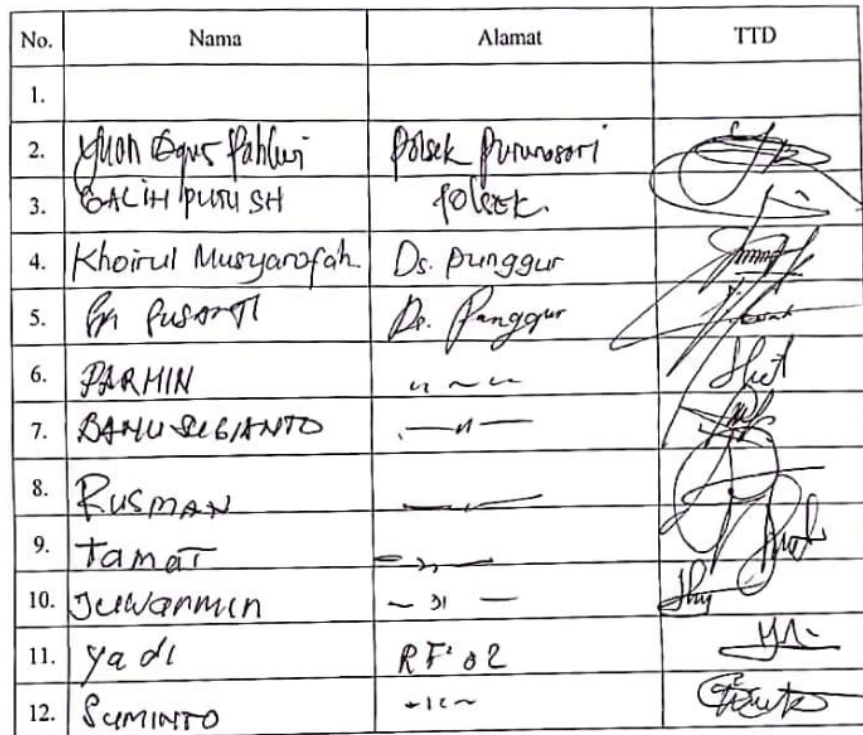 No. Nama Alamat TTD
1.
2. Yuon Agus Pahlevi Polsek Purwosari
3. GALIH PUTU SH POLSEK.
4. Khoirul Musyarofah Ds. Punggur
5. Sri SUSANTI Ds. Punggur
6. PARMIN
7. BANU SUGIANTO — 〃 —
8. RUSMAN
9. Tamat — 〃 —
10. Juwanmin — 〃 —
11. Yadi RT 02
12. SUMINTO